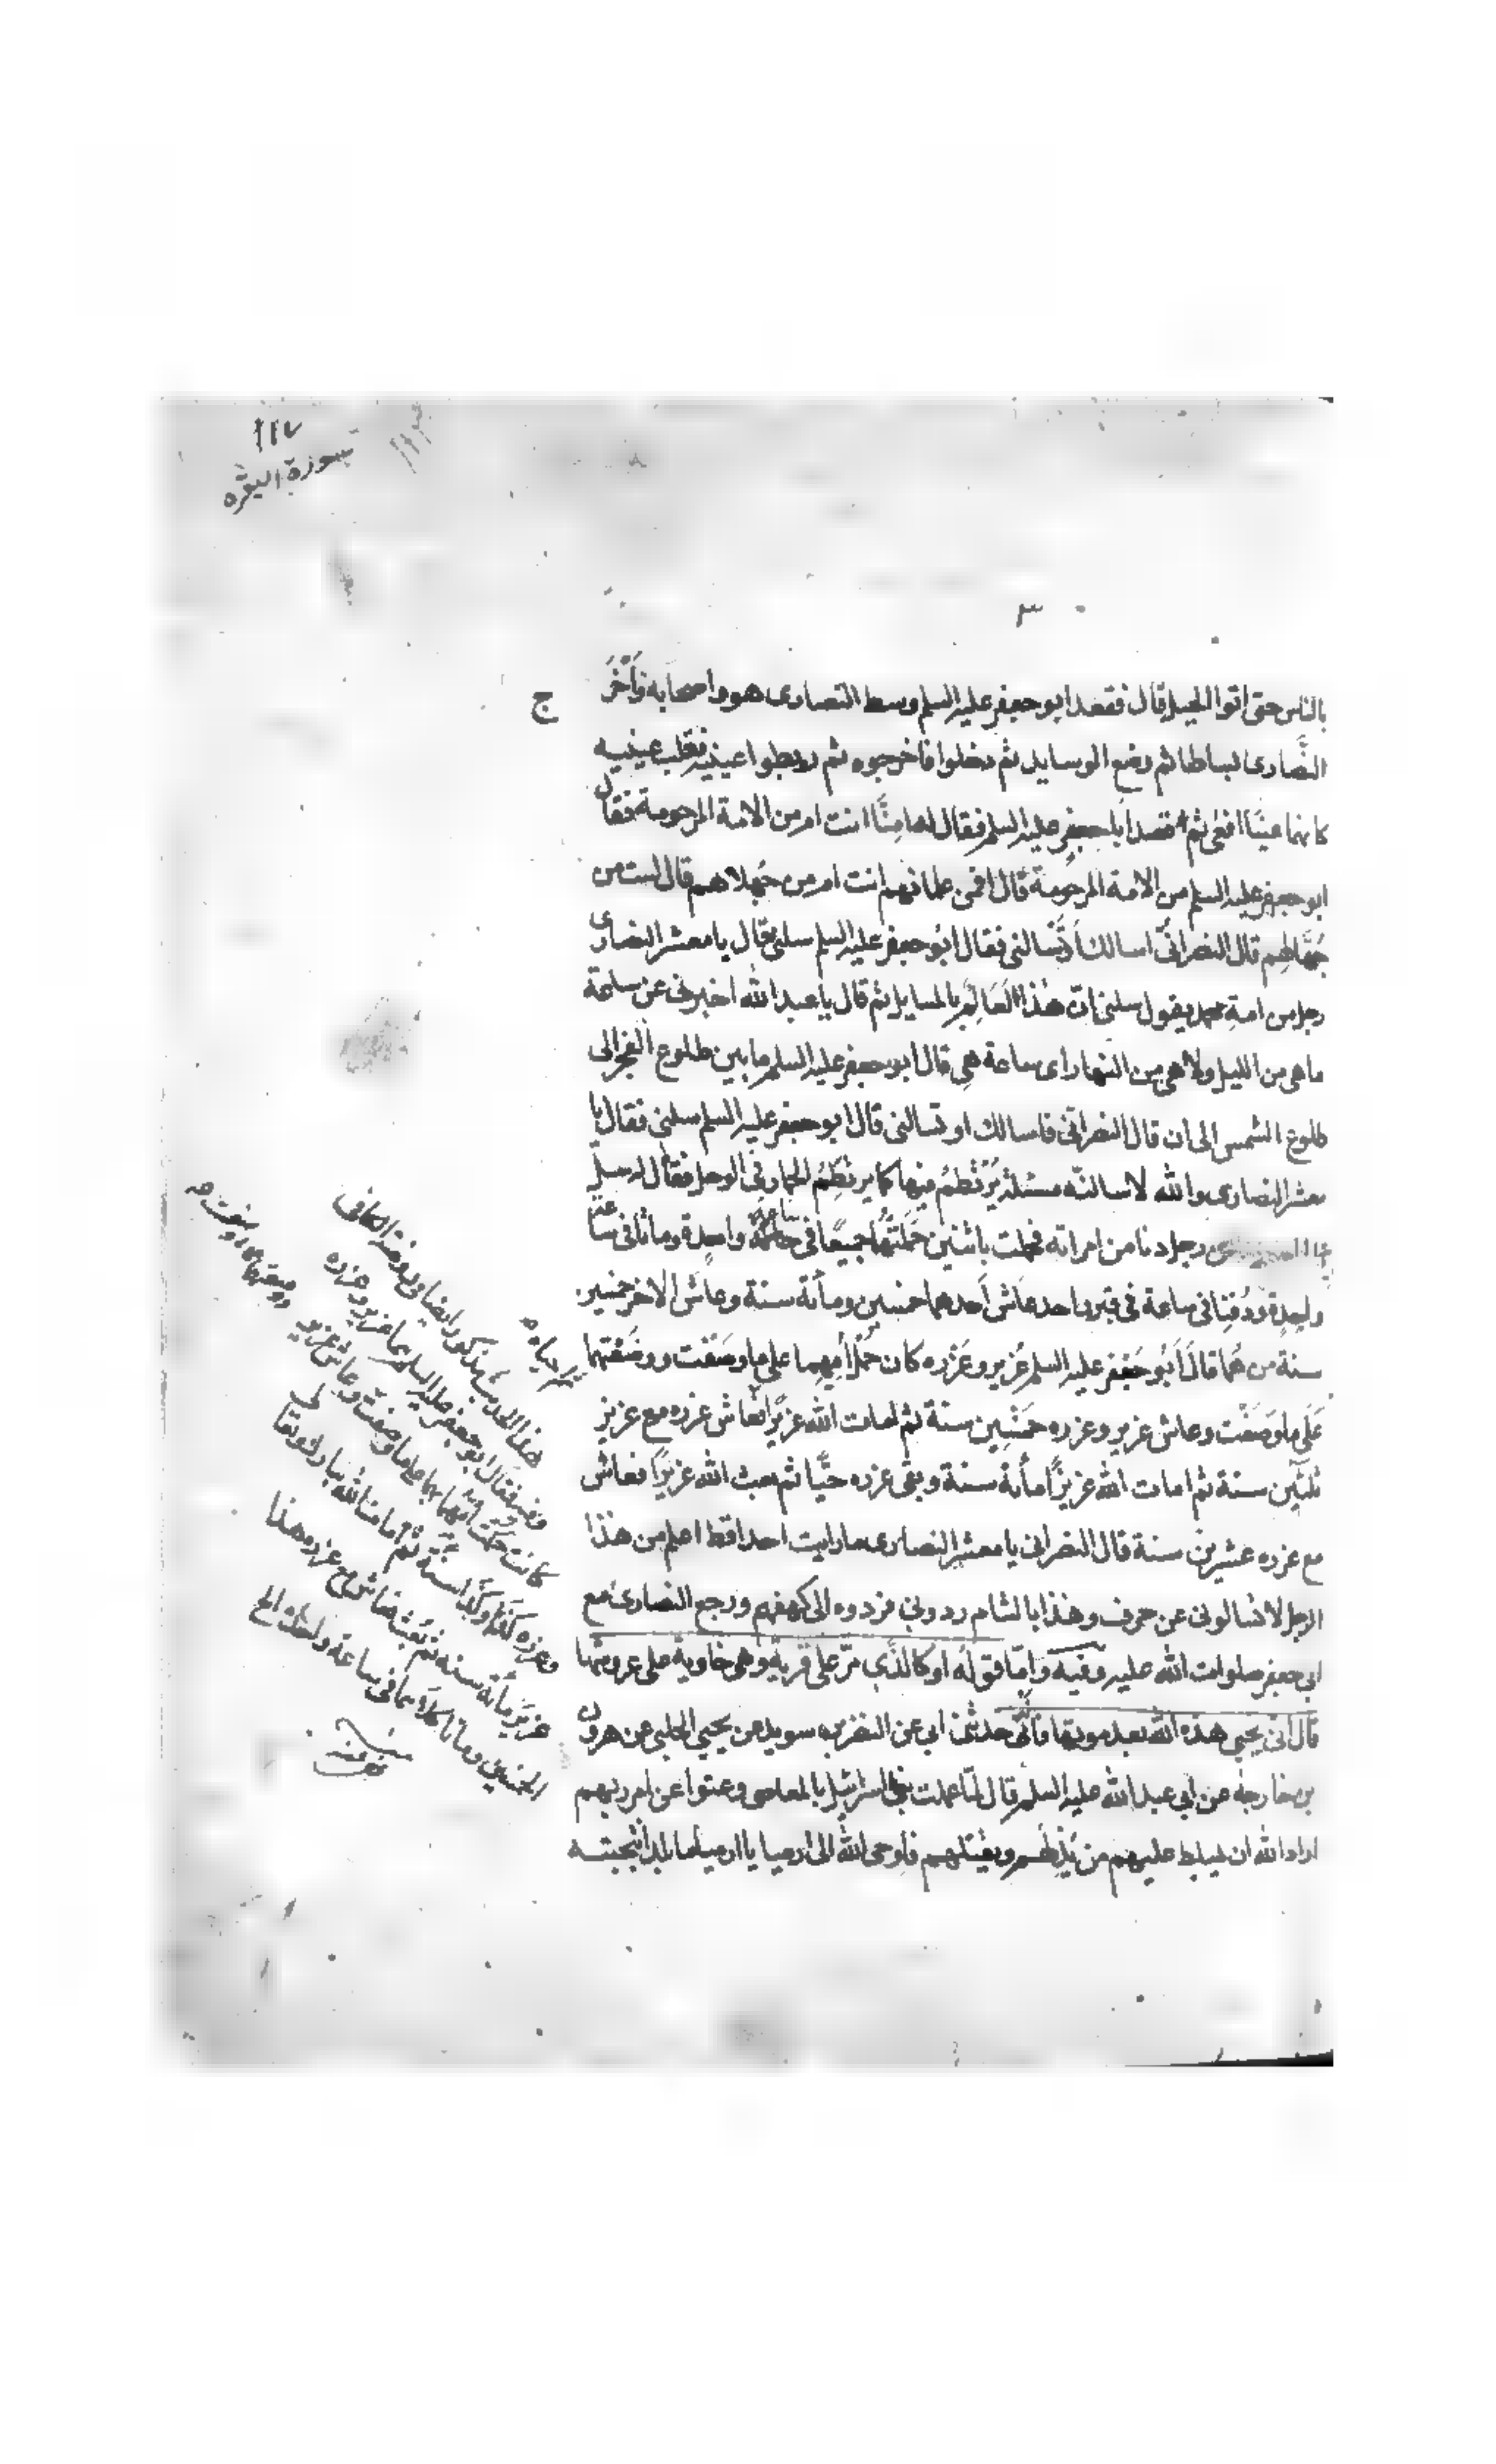 ١١٧
سورة البقره
بالناس حتى اتوا الجبل قال فقعد ابو جعفر عليه السلم وسط النصارى هو واصحابه فاخرج
النصارى بساطا ثم وضع الوسايد ثم دخلوا فاخرجوه ثم ربطوا عينيه فقلب عينيه
كانهما عينا افعى ثم قصد ابا جعفر عليه السلم فقال له امنا انت ام من الامة المرحومة فقال
ابو جعفر عليه السلم من الامة المرحومة قال افمن علمائهم انت ام من جهلائهم قال لست من
جهالهم قال النصرانى اسالك او تسالنى فقال ابو جعفر عليه السلم سلنى فقال يا معشر النصارى
رجل من امة محمد يقول سلنى ان هذا لعالم بالمسايل ثم قال يا عبد الله اخبرنى عن ساعة
ما هى من الليل ولا هى من النهار اى ساعة هى قال ابو جعفر عليه السلم ما بين طلوع الفجر الى
طلوع الشمس الى ان قال النصرانى فاسالك او تسالنى قال ابو جعفر عليه السلم سلنى فقال يا
معشر النصارى والله لاسالنه مسئلة يرتطم فيها كما يرتطم الحمار فى الوحل فقال له سل
عن رجل دنا من امراته فحملت باثنين حملتهما جميعا فى ساعة واحدة وماتا فى ساعة
واحدة ودفنا فى ساعة فى قبر واحد عاش احدهما خمسين ومأئة سنة وعاش الاخر خمسين
سنة من هما قال ابو جعفر عليه السلم عزير وعزره كان حمل امهما على ما وصفت ووضعتهما
على ما وصفت وعاش عزير وعزره خمسين سنة ثم امات الله عزيرا فعاش عزره مع عزير
ثلثين سنة ثم امات الله عزيرا مأئة سنة وبقى عزره حيا ثم بعث الله عزيرا فعاش
مع عزره عشرين سنة قال النصرانى يا معشر النصارى ما رايت احدا قط اعلم من هذا
الرجل لا تسالونى عن حرف وهذا بالشام ردونى فردوه الى كهفه ورجع النصارى مع
ابى جعفر صلوات الله عليه وفيه واما قوله او كالذى مر على قرية وهى خاوية على عروشها
قال انى يحيى هذه الله بعد موتها فانه حدثنى ابى عن النضر بن سويد عن يحيى الحلبى عن هرون
بن خارجه عن ابى عبد الله عليه السلم قال لما عملت بنى اسرائيل بالمعاصى وعتوا عن امر ربهم
اراد الله ان يسلط عليهم من يذلهم ويقتلهم فاوحى الله الى ارميا يا ارميا ما بلد انتجبته
هذا الحديث مذكور ايضا فى روضة الكافى
وفيه فقال ابو جعفر عليه السلم هما عزير وعزره
كانت حملت امهما بهما على ما وصفت وعاش عزير
وعزره كذا وكذا سنة ثم امات الله تبارك وتعالى
عزير مأئة سنه ثم بعثه فعاش مع عزره هذا
الخمسين وماتا كلاهما فى ساعة واحدة الخ